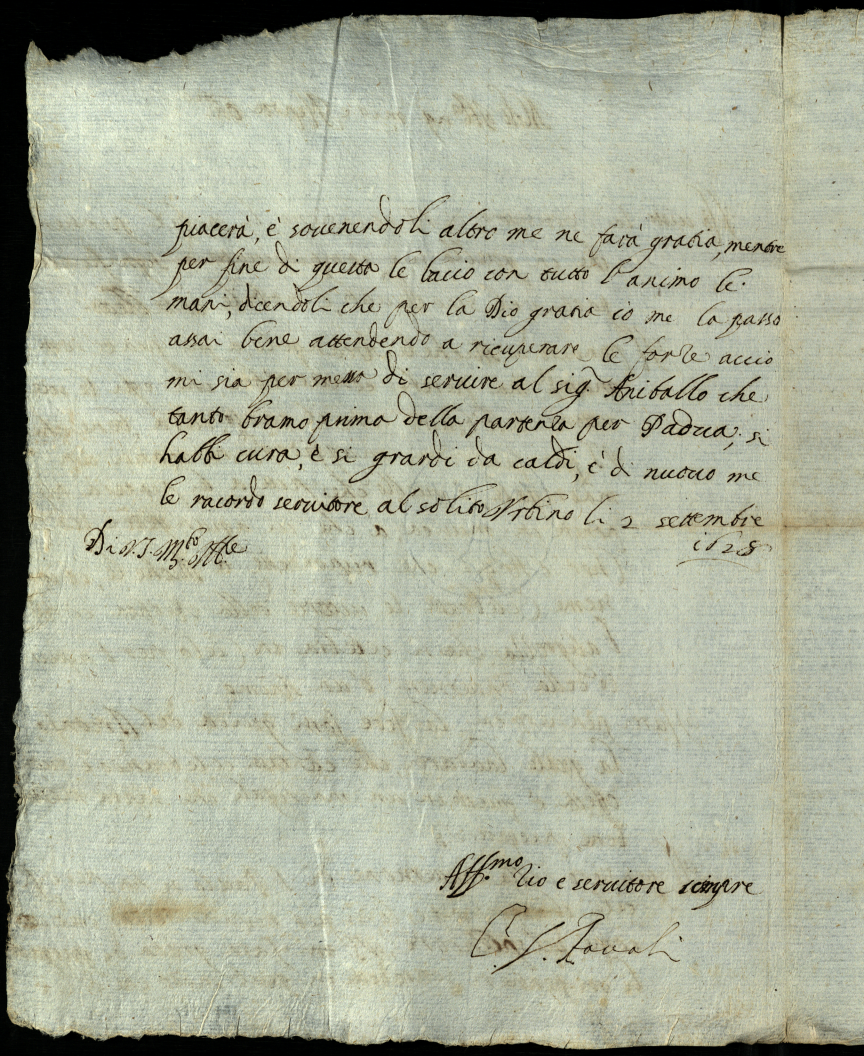 piacerà, è souenendoli altro me ne farà gratia, mentre
per fine di questa le bacio con tutto l'animo le
mani, dicendoli che per la Dio gratia io me la passo
assai bene attendendo a ricuperare le forze accio
mi sia per messo di seruire al sig.r Aniballo che
tanto bramo prima della partenza per Padua, si
habbi cura, è si grardi da caldi, è di nuouo me
le racordo seruitore al solito Vrbino li 2 settembre
1628
Di V.S. M.to Ill.e
Aff.mo Zio e seruitore sempre